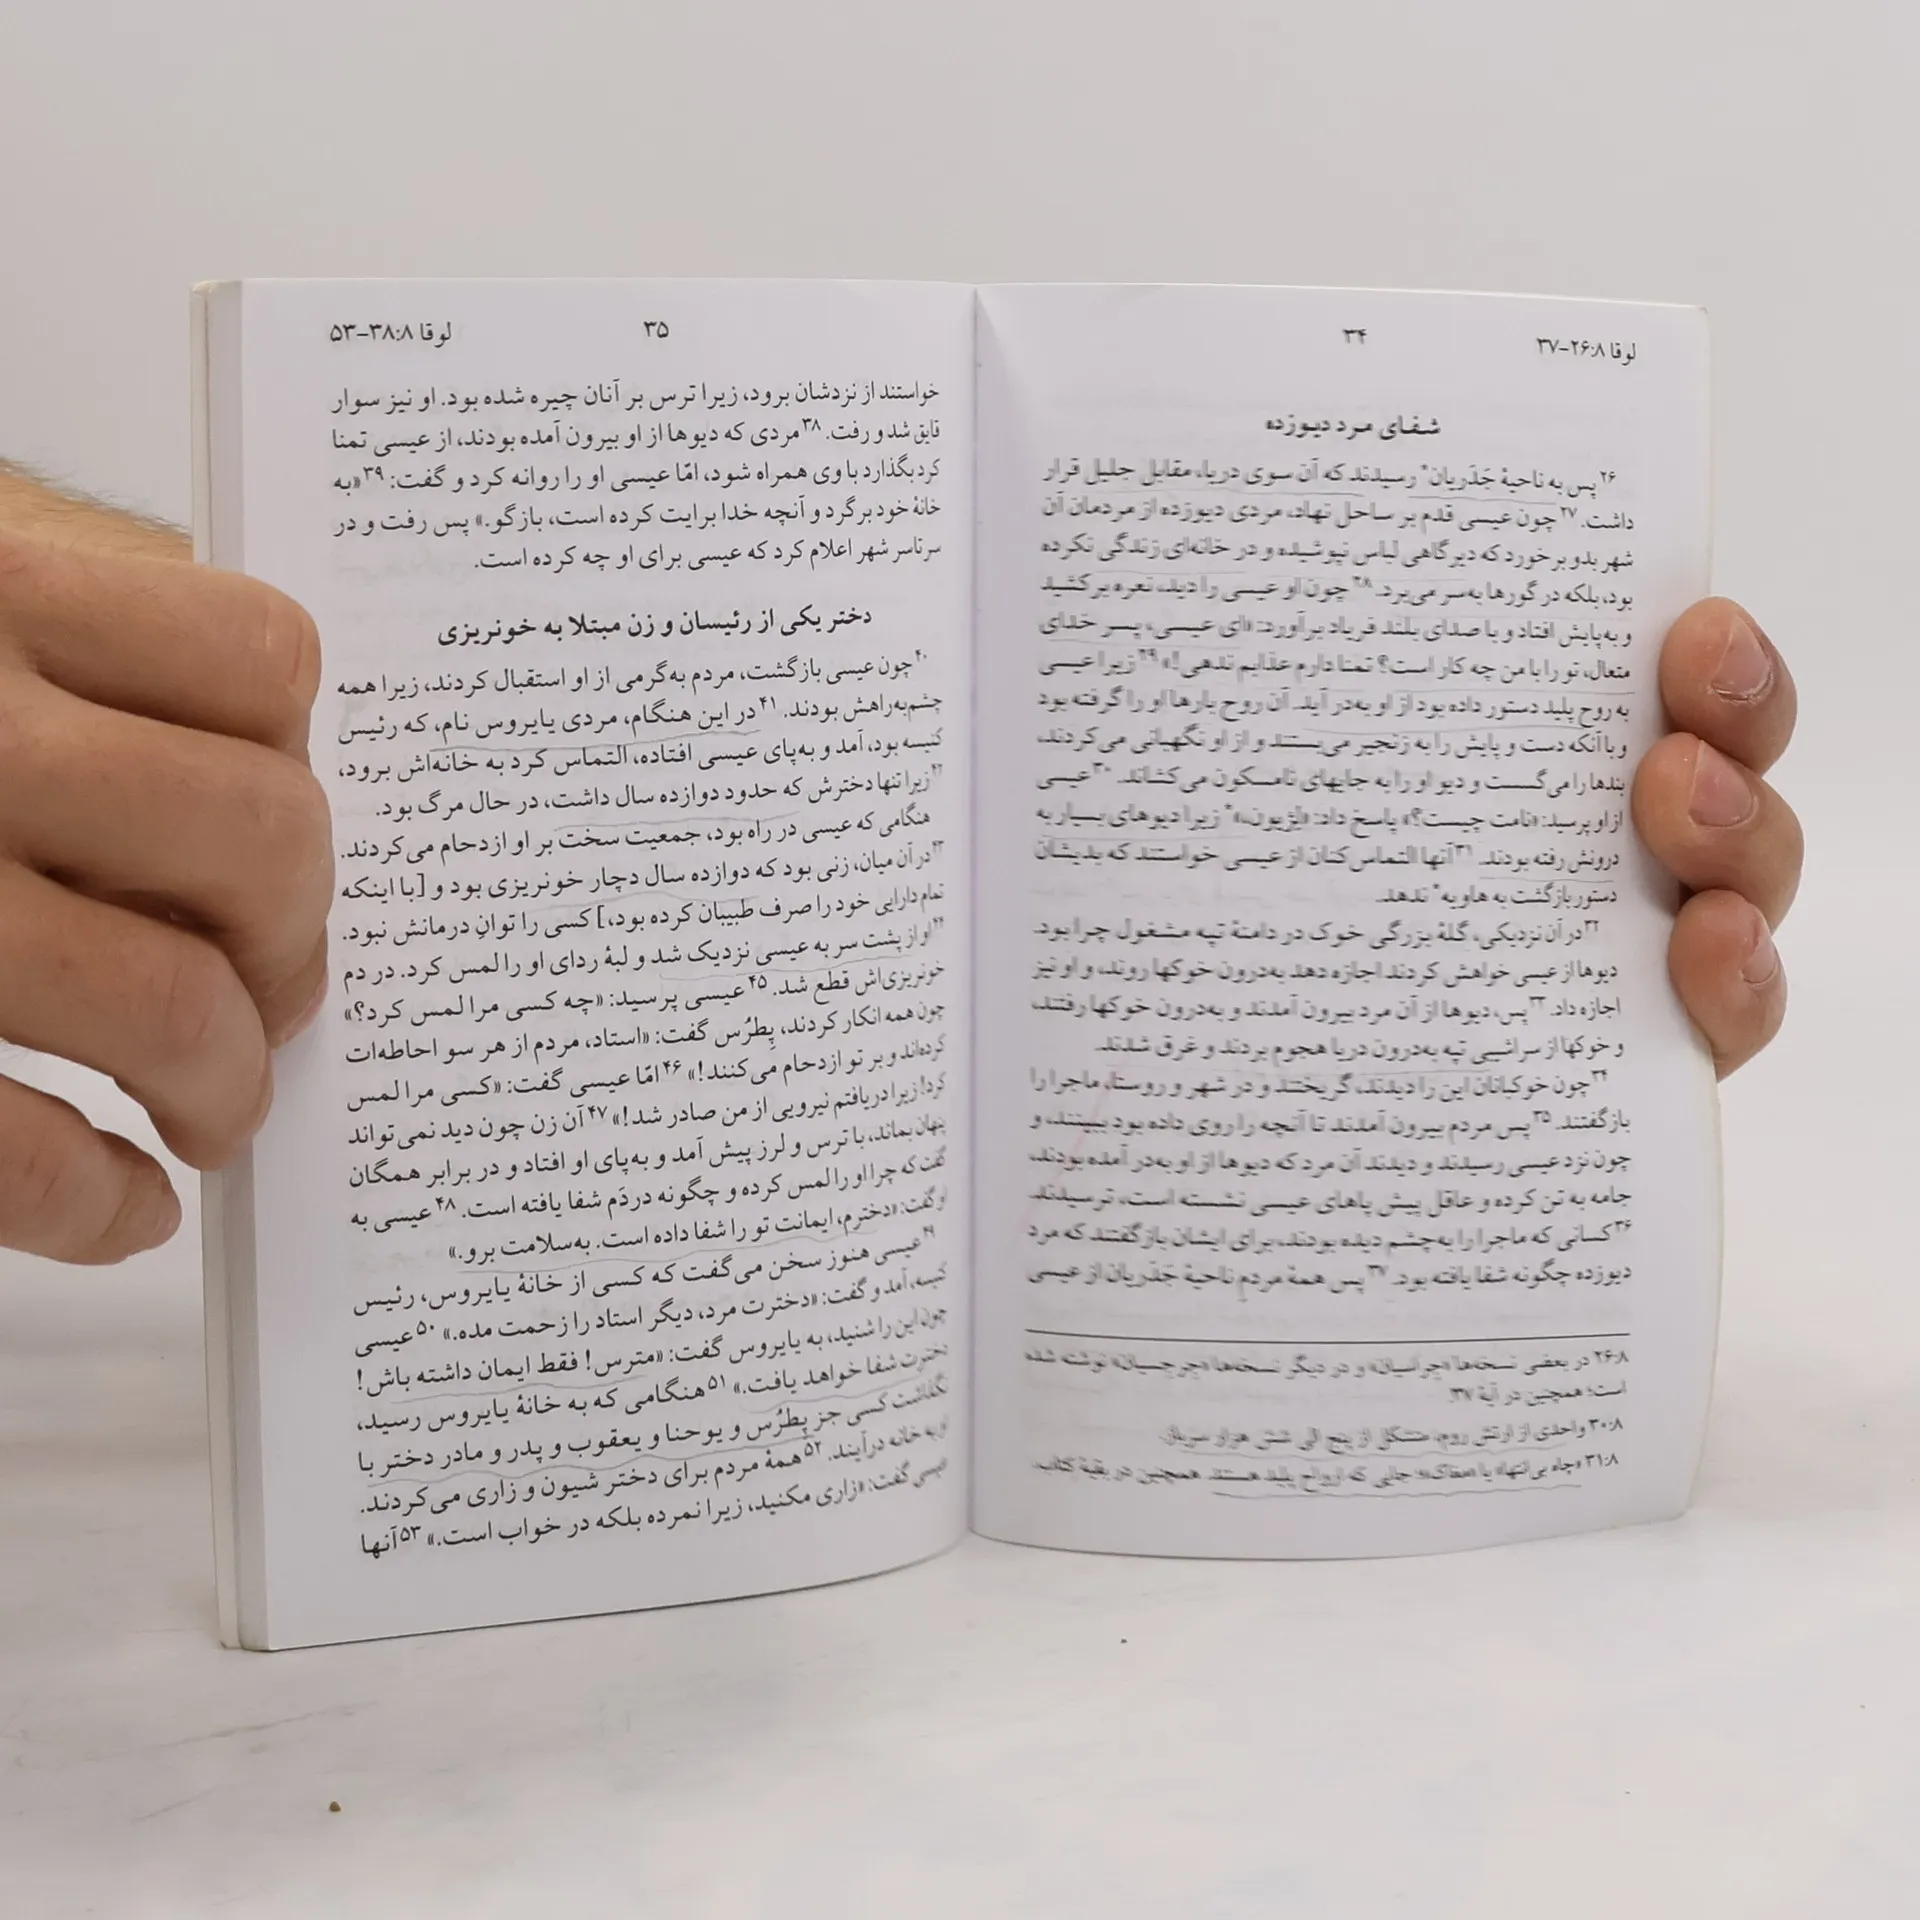 لوقا ۲۶:۸-۳۷
۳۴
شفای مرد دیوزده
۲۶ پس به ناحیهٔ جَدَریان* رسیدند که آن سوی دریا، مقابل جلیل قرار
داشت. ۲۷ چون عیسی قدم بر ساحل نهاد، مردی دیوزده از مردمان آن
شهر بدو برخورد که دیرگاهی لباس نپوشیده و در خانه‌ای زندگی نکرده
بود، بلکه در گورها به‌سر می‌برد. ۲۸ چون او عیسی را دید، نعره برکشید
و به‌پایش افتاد و با صدای بلند فریاد برآورد: «ای عیسی، پسر خدای
متعال، تو را با من چه کار است؟ تمنا دارم عذابم ندهی!» ۲۹ زیرا عیسی
به روح پلید دستور داده بود از او به‌در آید. آن روح بارها او را گرفته بود
و با آنکه دست و پایش را به زنجیر می‌بستند و از او نگهبانی می‌کردند،
بندها را می‌گسست و دیو او را به جایهای نامسکون می‌کشاند. ۳۰ عیسی
از او پرسید: «نامت چیست؟» پاسخ داد: «لِژیون،»* زیرا دیوهای بسیار به
درونش رفته بودند. ۳۱ آنها التماس‌کنان از عیسی خواستند که بدیشان
دستور بازگشت به هاویه* ندهد.
۳۲ در آن نزدیکی، گلهٔ بزرگی خوک در دامنهٔ تپه مشغول چرا بود.
دیوها از عیسی خواهش کردند اجازه دهد به‌درون خوکها روند، و او نیز
اجازه داد. ۳۳ پس، دیوها از آن مرد بیرون آمدند و به‌درون خوکها رفتند،
و خوکها از سراشیبی تپه به‌درون دریا هجوم بردند و غرق شدند.
۳۴ چون خوکبانان این را دیدند، گریختند و در شهر و روستا، ماجرا را
بازگفتند. ۳۵ پس مردم بیرون آمدند تا آنچه را روی داده بود ببینند، و
چون نزد عیسی رسیدند و دیدند آن مرد که دیوها از او به‌در آمده بودند،
جامه به تن کرده و عاقل پیش پاهای عیسی نشسته است، ترسیدند.
۳۶ کسانی که ماجرا را به‌چشم دیده بودند، برای ایشان بازگفتند که مرد
دیوزده چگونه شفا یافته بود. ۳۷ پس همهٔ مردمِ ناحیهٔ جَدَریان از عیسی
۲۶:۸ در بعضی نسخه‌ها «جراسیان» و در دیگر نسخه‌ها «جرجسیان» نوشته شده
است؛ همچنین در آیهٔ ۳۷.
۳۰:۸ واحدی از ارتش روم، متشکل از پنج الی شش هزار سرباز.
۳۱:۸ «چاه بی‌انتها» یا «مغاک»؛ جایی که ارواح پلید هستند. همچنین در بقیهٔ کتاب.
لوقا ۳۸:۸-۵۳
۳۵
خواستند از نزدشان برود، زیرا ترس بر آنان چیره شده بود. او نیز سوار
قایق شد و رفت. ۳۸ مردی که دیوها از او بیرون آمده بودند، از عیسی تمنا
کرد بگذارد با وی همراه شود، امّا عیسی او را روانه کرد و گفت: ۳۹ «به
خانهٔ خود برگرد و آنچه خدا برایت کرده است، بازگو.» پس رفت و در
سرتاسر شهر اعلام کرد که عیسی برای او چه کرده است.
دختر یکی از رئیسان و زن مبتلا به خونریزی
۴۰ چون عیسی بازگشت، مردم به‌گرمی از او استقبال کردند، زیرا همه
چشم‌به‌راهش بودند. ۴۱ در این هنگام، مردی یایروس نام، که رئیس
کنیسه بود، آمد و به‌پای عیسی افتاده، التماس کرد به خانه‌اش برود،
۴۲ زیرا تنها دخترش که حدود دوازده سال داشت، در حال مرگ بود.
هنگامی که عیسی در راه بود، جمعیت سخت بر او ازدحام می‌کردند.
۴۳ در آن میان، زنی بود که دوازده سال دچار خونریزی بود و [با اینکه
تمام دارایی خود را صرف طبیبان کرده بود،] کسی را توانِ درمانش نبود.
۴۴ او از پشت سر به عیسی نزدیک شد و لبهٔ ردای او را لمس کرد. در دم
خونریزی‌اش قطع شد. ۴۵ عیسی پرسید: «چه کسی مرا لمس کرد؟»
چون همه انکار کردند، پِطرُس گفت: «استاد، مردم از هر سو احاطه‌ات
کرده‌اند و بر تو ازدحام می‌کنند!» ۴۶ امّا عیسی گفت: «کسی مرا لمس
کرد! زیرا دریافتم نیرویی از من صادر شد!» ۴۷ آن زن چون دید نمی‌تواند
پنهان بماند، با ترس و لرز پیش آمد و به‌پای او افتاد و در برابر همگان
گفت که چرا او را لمس کرده و چگونه دردَم شفا یافته است. ۴۸ عیسی به
او گفت: «دخترم، ایمانت تو را شفا داده است. به‌سلامت برو.»
۴۹ عیسی هنوز سخن می‌گفت که کسی از خانهٔ یایروس، رئیس
کنیسه، آمد و گفت: «دخترت مرد، دیگر استاد را زحمت مده.» ۵۰ عیسی
چون این را شنید، به یایروس گفت: «مترس! فقط ایمان داشته باش!
دخترت شفا خواهد یافت.» ۵۱ هنگامی که به خانهٔ یایروس رسید،
نگذاشت کسی جز پِطرُس و یوحنا و یعقوب و پدر و مادر دختر با
او به خانه درآیند. ۵۲ همهٔ مردم برای دختر شیون و زاری می‌کردند.
عیسی گفت: «زاری مکنید، زیرا نمرده بلکه در خواب است.» ۵۳ آنها